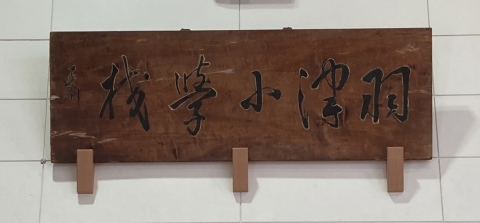 羽津小學校